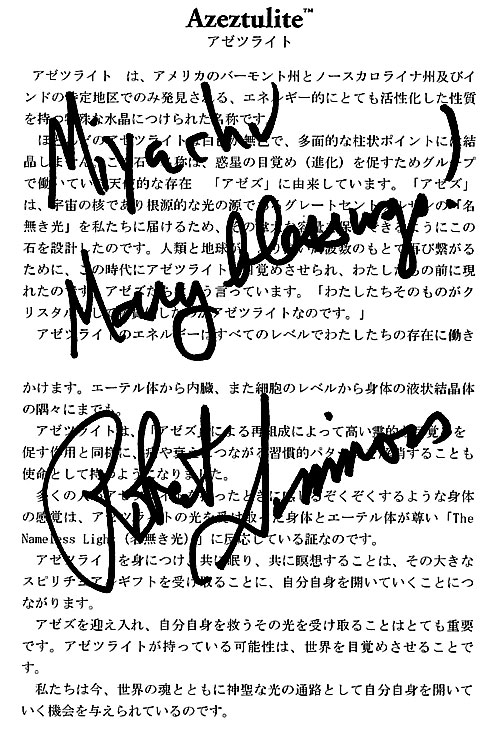 Azeztulite™
アゼツライト
アゼツライト は、アメリカのバーモント州とノースカロライナ州及びイ
ンドの特定地区でのみ発見される、エネルギー的にとても活性化した性質
を持つ特殊な水晶につけられた名称です
Miyachi
ほとんどのアゼツライトは白か無色で、多面的な柱状ポイントには結
晶しません。この石の名称は、惑星の目覚め（進化）を促すためグループ
で働いている天使的な存在 「アゼズ」に由来しています。「アゼズ」
は、宇宙の核であり根源的な光の源であるグレートセントラルサンの「名
無き光」を私たちに届けるため、その できるようにこの
石を設計したのです。人類と地球が のもとで再び繋がる
Many blessings!
ために、この時代にアゼツライト 目覚めさせられ、わたしたちの前に現
れたのです。アゼズたち 言っています。「わたしたちそのものがク
リスタル アゼツライトなのです。」
アゼツライトのエネルギーはすべてのレベルでわたしたちの存在に働き
かけます。エーテル体から内臓、また細胞のレベルから身体の液状結晶体
の隅々にまでも。
アゼツライトは、「アゼズ」による再組成によって高い霊的な目覚めを
促す作用と同様に、 つながる習慣的パターン 解消することも
使命として持つようになりました。
Robert Simmons
多くの人 アゼツライト ったときに感じるぞくぞくするような身体
の感覚は、アゼツライトの光を受け取った身体とエーテル体が尊い「The
Nameless Light（名無き光）」に反応している証なのです。
アゼツライトを身につけ、共に眠り、共に瞑想することは、その大きな
スピリチュアルギフトを受け取ることに、自分自身を開いていくことにつ
ながります。
アゼズを迎え入れ、自分自身を救うその光を受け取ることはとても重要
です。アゼツライトが持っている可能性は、世界を目覚めさせることで
す。
私たちは今、世界の魂とともに神聖な光の通路として自分自身を開いて
いく機会を与えられているのです。